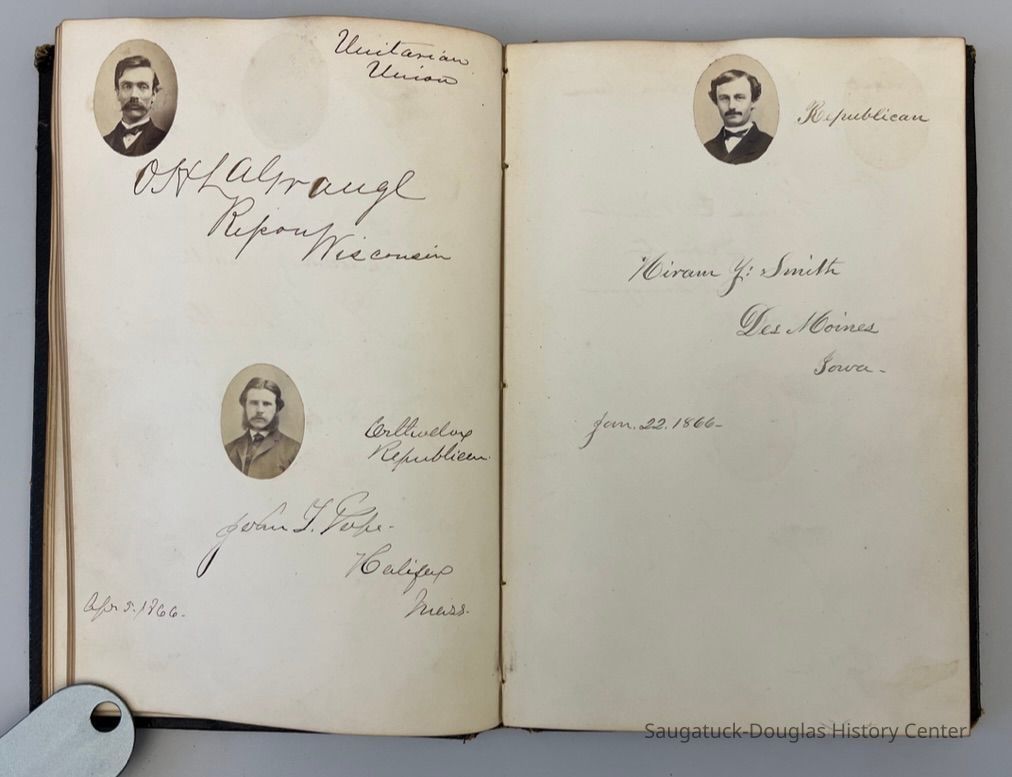 Unitarian
Union
O H LaGrange
Ripon
Wisconsin
Orthodox
Republican.
John F. Pope.
Halifax
Mass.
Apr 5. 1866.
Republican
Hiram Y. Smith
Des Moines
Iowa.
Jan. 22. 1866.
Saugatuck-Douglas History Center